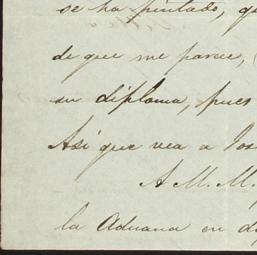 se ha pintado, q
de que me parece,
su diploma, pues
Así que vea a Jos
A M. M.
la Aduana en d